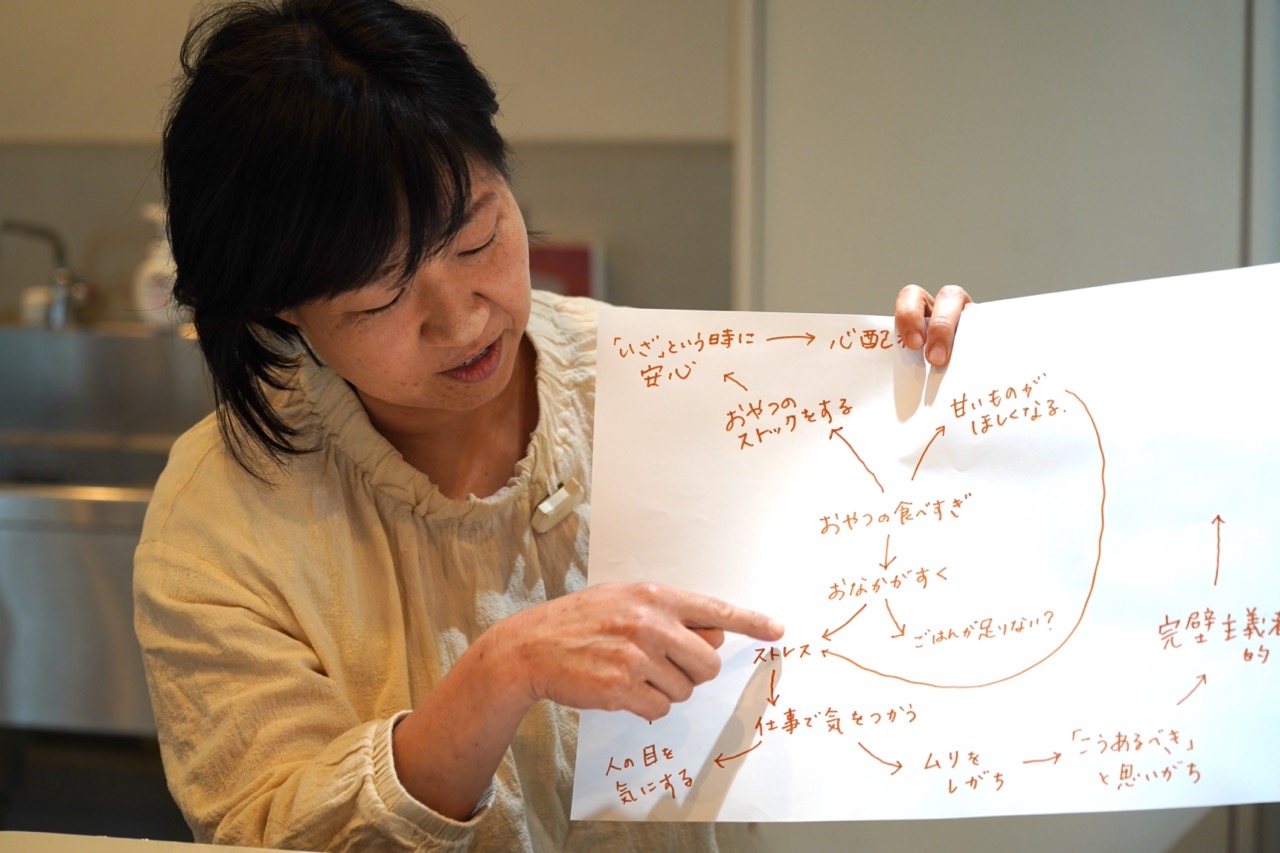 「いざ」という時に → 心配
安心
おやつの
ストックをする
甘いものが
ほしくなる.
おやつの食べすぎ
おなかがすく
ごはんが足りない?
ストレス
仕事で気をつかう
人の目を
気にする
ムリを
しがち
「こうあるべき」
と思いがち
完璧主義者
的